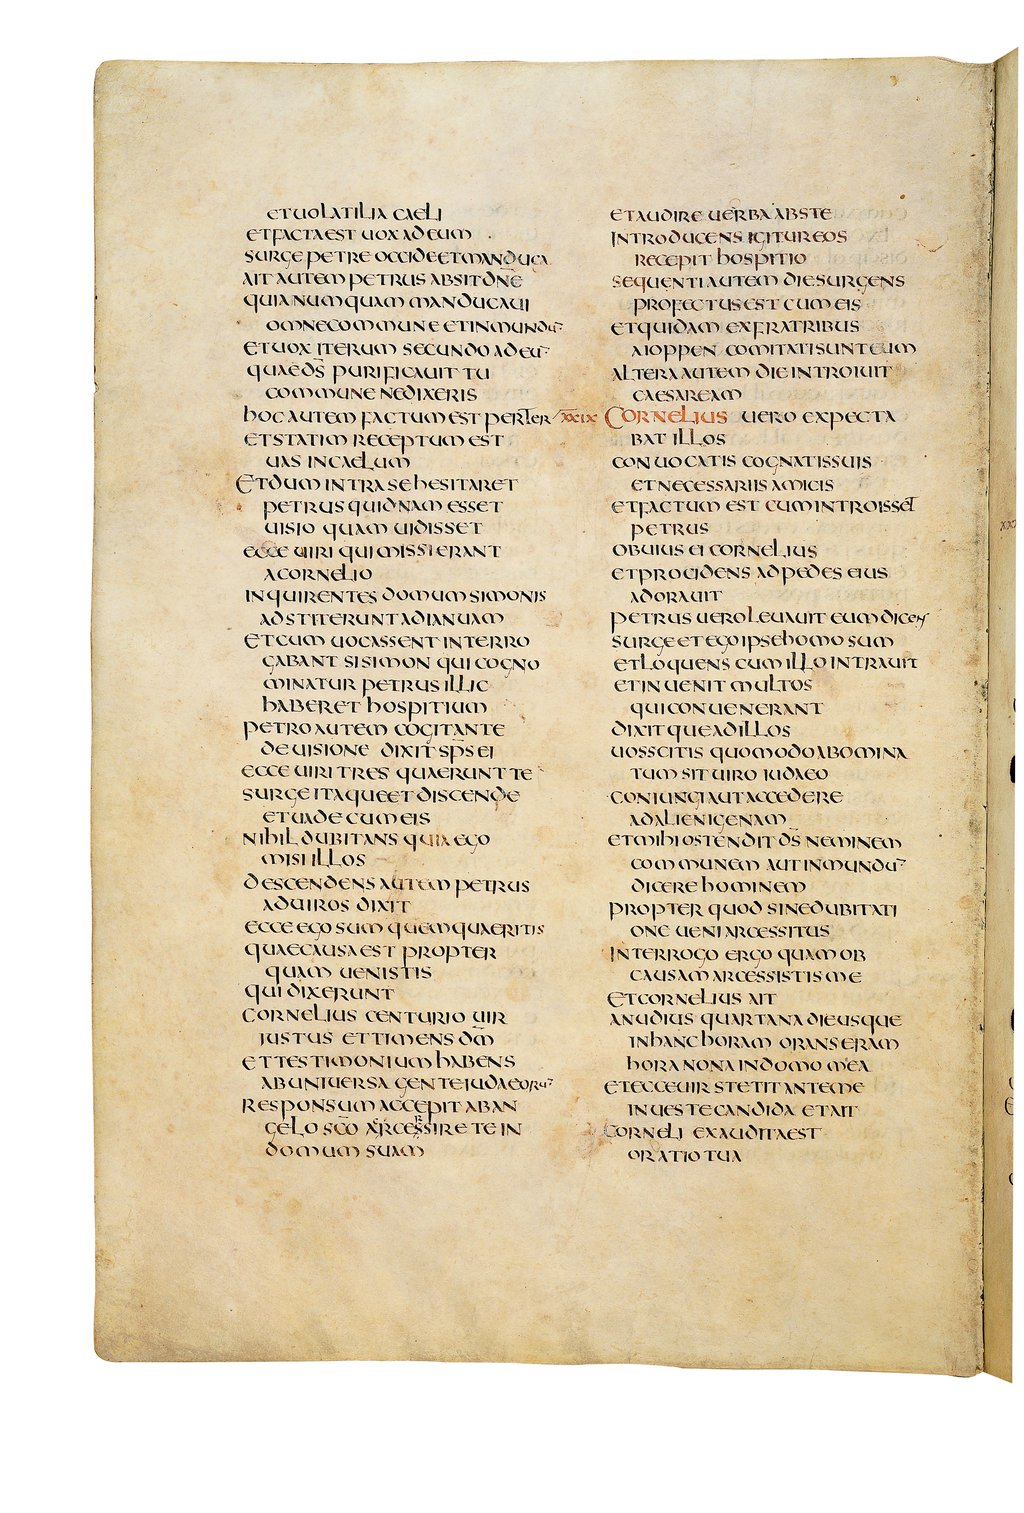 ETUOLATILIA CAELI
ETFACTAEST UOX ADEUM
SURGE PETRE OCCIDE ETMANDUCA
AIT AUTEM PETRUS ABSIT DN̄E
QUIA NUMQUAM MANDUCAUI
OMNECOMMUNE ETINMUNDU̅
ETUOX ITERUM SECUNDO ADEU̅
QUAEDS̄ PURIFICAUIT TU
COMMUNE NEDIXERIS
HOC AUTEM FACTUM EST PERTER
ETSTATIM RECEPTUM EST
UAS INCAELUM
ETDUM INTRA SE HESITARET
PETRUS QUIDNAM ESSET
UISIO QUAM UIDISSET
ECCE UIRI QUI MISSI ERANT
ACORNELIO
INQUIRENTES DOMUM SIMONIS
ADSTITERUNT ADIANUAM
ETCUM UOCASSENT INTERRO
GABANT SI SIMON QUI COGNO
MINATUR PETRUS ILLIC
HABERET HOSPITIUM
PETRO AUTEM COGITANTE
DE UISIONE DIXIT SPS̄ EI
ECCE UIRI TRES QUAERUNT TE
SURGE ITAQUE ET DISCENDE
ET UADE CUM EIS
NIHIL DUBITANS QUIA EGO
MISI ILLOS
DESCENDENS AUTEM PETRUS
AD UIROS DIXIT
ECCE EGO SUM QUEM QUAERITIS
QUAE CAUSA EST PROPTER
QUAM UENISTIS
QUI DIXERUNT
CORNELIUS CENTURIO UIR
IUSTUS ET TIMENS DM̄
ET TESTIMONIUM HABENS
AB UNIUERSA GENTE IUDAEORU̅
RESPONSUM ACCEPIT AB AN
GELO SC̄O ARCESSIRE TE IN
DOMUM SUAM
ET AUDIRE UERBA ABS TE
INTRODUCENS IGITUR EOS
RECEPIT HOSPITIO
SEQUENTI AUTEM DIE SURGENS
PROFECTUS EST CUM EIS
ET QUIDAM EX FRATRIBUS
A IOPPEN COMITATI SUNT EUM
ALTERA AUTEM DIE INTROIUIT
CAESAREAM
XXIX CORNELIUS UERO EXPECTA
BAT ILLOS
CONUOCATIS COGNATIS SUIS
ET NECESSARIIS AMICIS
ET FACTUM EST CUM INTROISSET
PETRUS
OBUIUS EI CORNELIUS
ET PROCIDENS AD PEDES EIUS
ADORAUIT
PETRUS UERO LEUAUIT EUM DICENS
SURGE ET EGO IPSE HOMO SUM
ET LOQUENS CUM ILLO INTRAUIT
ET INUENIT MULTOS
QUI CONUENERANT
DIXITQUE AD ILLOS
UOS SCITIS QUOMODO ABOMINA
TUM SIT UIRO IUDAEO
CONIUNGI AUT ACCEDERE
AD ALIENIGENAM
ET MIHI OSTENDIT DS̄ NEMINEM
COMMUNEM AUT INMUNDU̅
DICERE HOMINEM
PROPTER QUOD SINE DUBITATI
ONE UENI ARCESSITUS
INTERROGO ERGO QUAM OB
CAUSAM ARCESSISTIS ME
ET CORNELIUS AIT
A NUDIUS QUARTANA DIE USQUE
IN HANC HORAM ORANS ERAM
HORA NONA IN DOMO MEA
ET ECCE UIR STETIT ANTE ME
IN UESTE CANDIDA ET AIT
CORNELI EXAUDITA EST
ORATIO TUA